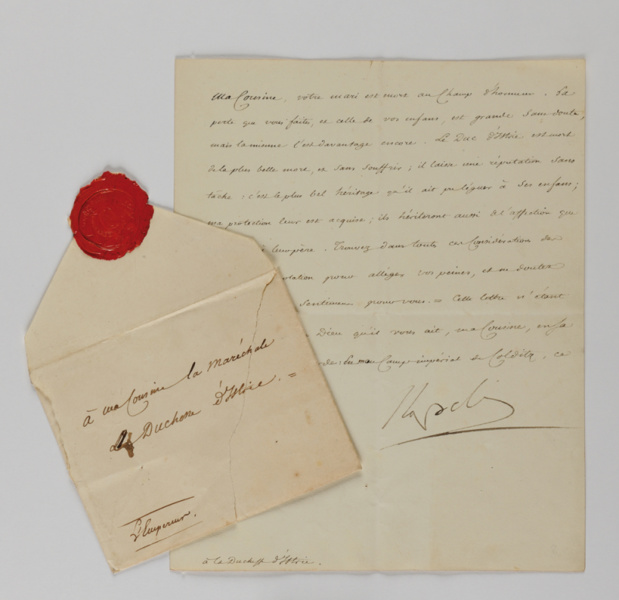 Ma Cousine, votre mari est mort au Champ d'honneur. La
perte que vous faites, et celle de vos enfans, est grande sans doute,
mais la mienne l'est davantage encore. Le Duc d'Istrie est mort
de la plus belle mort, et sans souffrir; il laisse une réputation sans
tâche: c'est le plus bel héritage qu'il ait pu léguer à ses enfans;
ma protection leur est acquise; ils hériteront aussi de l'affection que
leur père. Trouvez dans toutes ces considérations de
pour alléger vos peines, et ne doutez
sentimens pour vous. = Cette lettre n'étant
Dieu qu'il vous ait, ma Cousine, en sa
de mon Camp impérial de Colditz, ce
à ma Cousine la Maréchale
Duchesse d'Istrie. =
L'Empereur.
à la Duchesse d'Istrie.